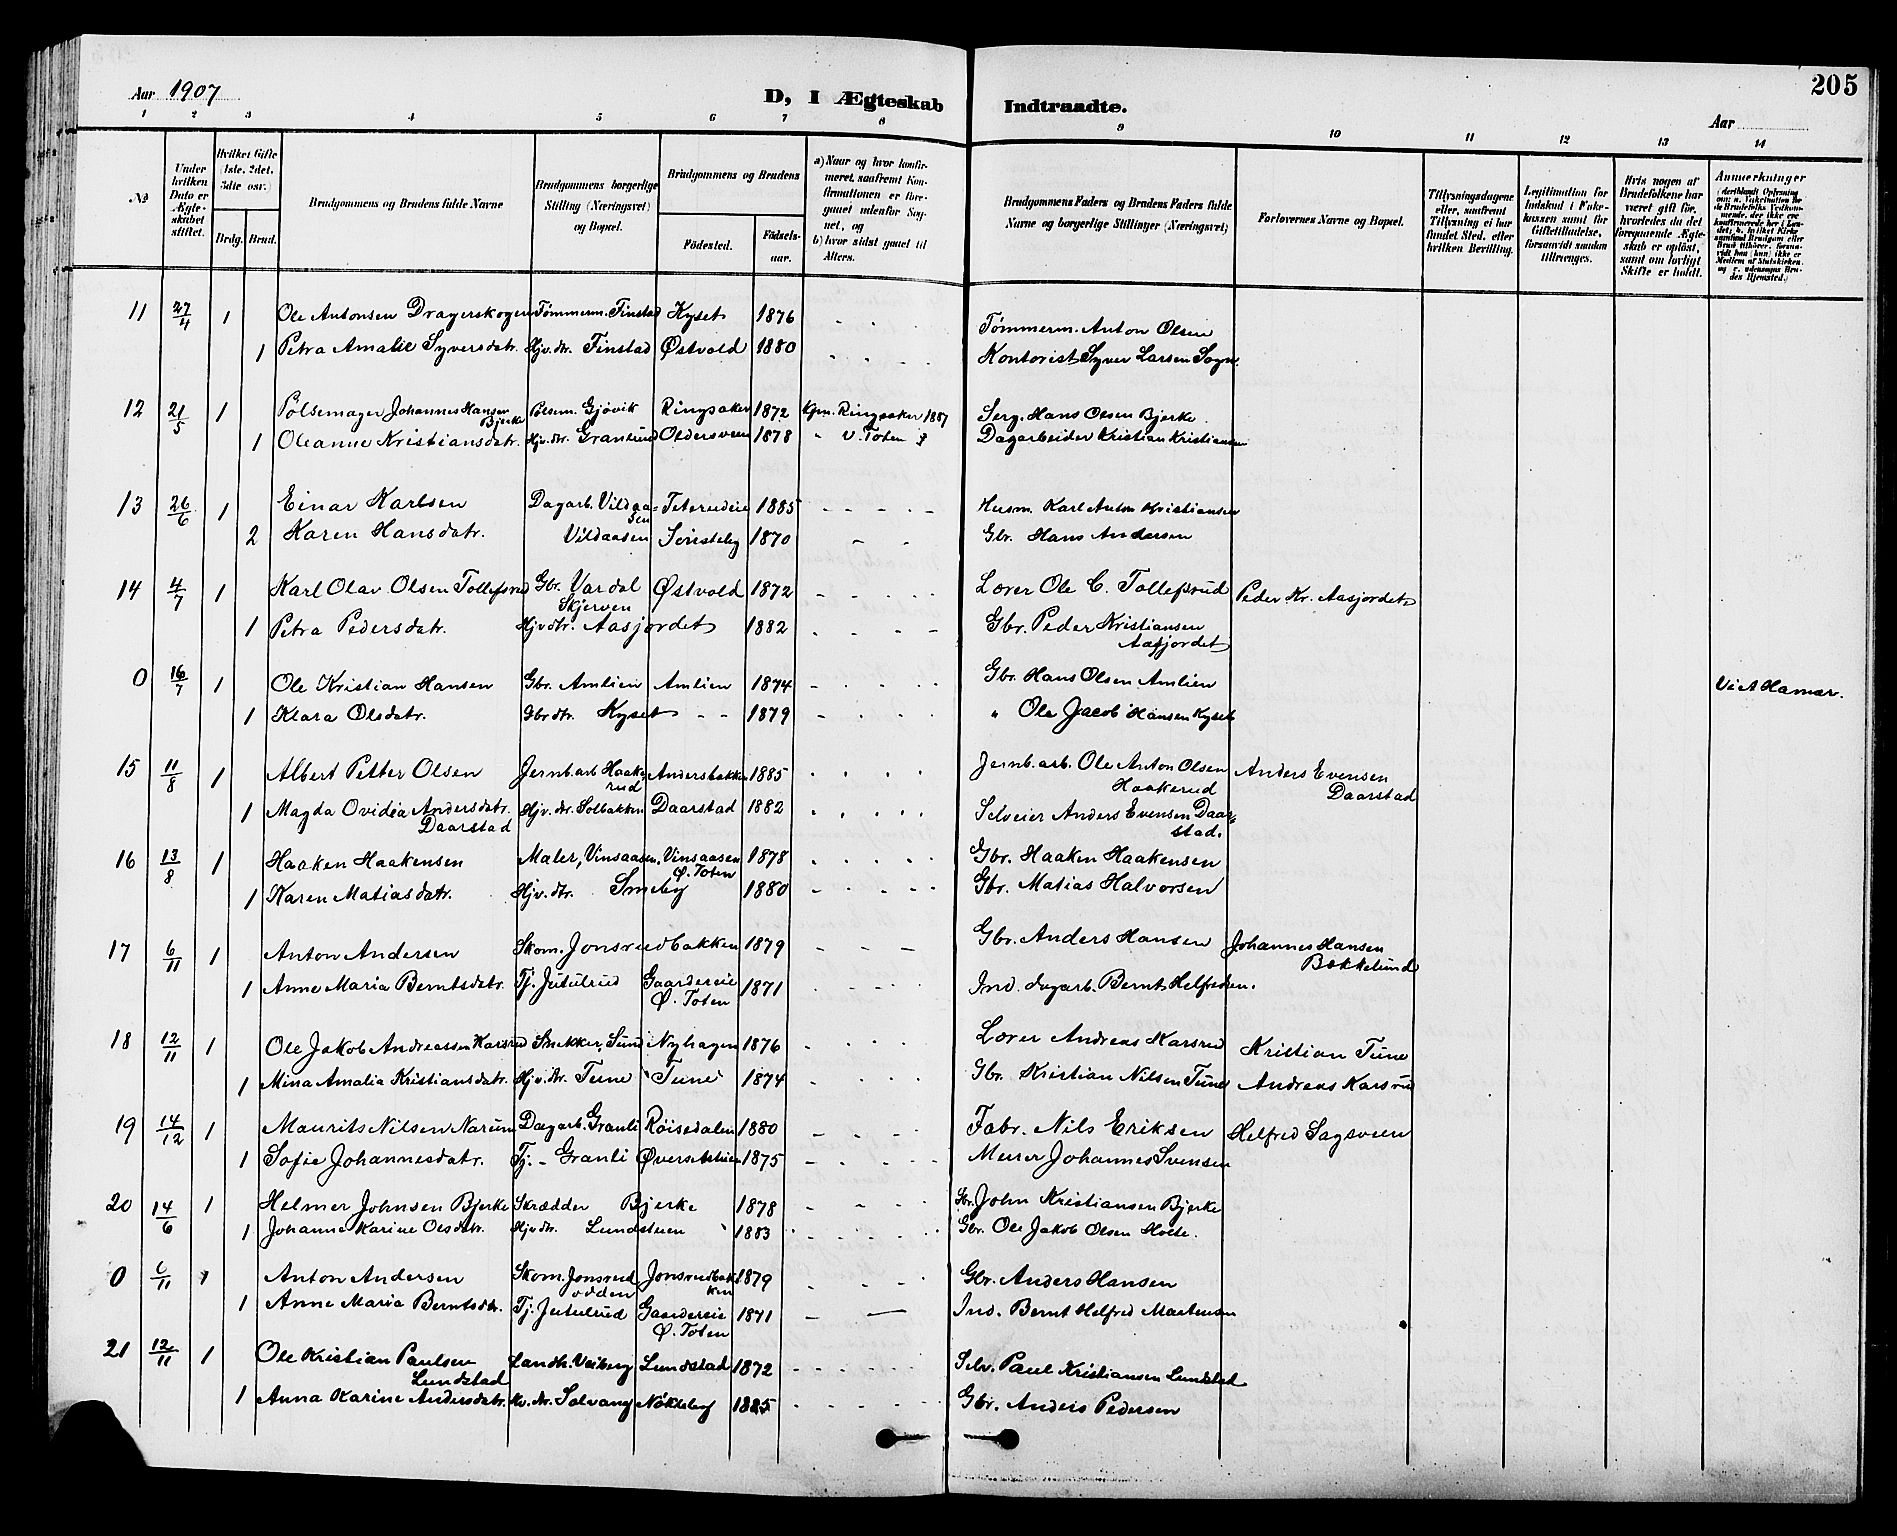 Aar 1907
D, I Ægteskab Indtraadte.
205
Aar
1 2 3 4 5 6 7 8 9 10 11 12 13 14
№
Under hvilken Dato er Ægteskabet stiftet.
Hvilket Gifte (1ste. 2det. 3die osv.)
Brdg. Brud.
Brudgommens og Brudens fulde Navne
Brudgommens borgerlige Stilling (Næringsvei) og Bopæl.
Brudgommens og Brudens
Fødested. Fødselsaar.
a) Naar og hvor konfirmeret, saafremt Konfirmationen er foregaaet udenfor Sognet, og
b) hvor sidst gaaet til Alters.
Brudgommens Faders og Brudens Faders fulde Navne og borgerlige Stillinger (Næringsvei)
Forlovernes Navne og Bopæl.
Tillysningsdagene eller, saafremt Tillysning ei har fundet Sted, efter hvilken Bevilling.
Legitimation for Indskud i Enkekassen samt for Giftetilladelse, forsaavidt saadan tiltrænges.
Hvis nogen af Brudefolkene har været gift før, hvorledes da det foregaaende Ægteskab er opløst, samt om lovligt Skifte er holdt.
Anmerkninger
11 27/4 1 Ole Antonsen Dragerskogen Tømmerm. Finstad Kyset 1876 Tømmerm. Anton Olsen
1 Petra Amalie Syversdatr. Hjv. dtr. Finstad Østvold 1880 Kontorist Syver Larsen Sogn.
12 21/5 1 Pølsemager Johannes Hansen Bjerke Pølsem. Gjøvik Ringsaker 1872 Kfm. Ringsaker 1887 Serg. Hans Olsen Bjerke.
1 Oleanne Kristiansdatr. Hjv. dtr. Granlund Oldersveen 1878 " V. Toten Dagarbeider Kristian Kristiansen
13 26/6 1 Einar Karlsen Dagarb. Vildaasen Teterudeie 1885 Husm. Karl Anton Kristiansen
2 Karen Hansdatr. Vildaasen Sønsteby 1870 Gbr. Hans Andersen
14 4/7 1 Karl Olav Olsen Tollefsrud Gbr. Vardal Skjerven Østvold 1872 Lærer Ole C. Tollefsrud Peder Kr. Aasjordet
1 Petra Pedersdatr. Hjv dtr. Aasjordet 1882 Gbr. Peder Kristiansen Aasjordet
0 16/7 1 Ole Kristian Hansen Gbr. Amlien Amlien 1874 Gbr. Hans Olsen Amlien Viet Hamar.
1 Klara Olsdatr. Gbr dtr. Kyset - - 1879 " Ole Jacob Hansen Kyset
15 11/8 1 Albert Petter Olsen Jernb. arb Haakerud Andersbakken 1885 Jernb. arb. Ole Anton Olsen Haakerud Anders Evensen Daarstad
1 Magda Ovidia Andersdatr. Daarstad Hjv. dtr. Solbakken Daarstad 1882 Selveier Anders Evensen Daarstad.
16 13/8 1 Haaken Haakensen Maler, Vinsaasen, Vinsaasen Ø. Toten 1878 Gbr. Haaken Haakensen
1 Karen Matiasdatr. Hjv. dtr. Smeby 1880 Gbr. Matias Halvorsen
17 6/11 1 Anton Andersen Skom. Jonsrudbakken 1879 Gbr. Anders Hansen Johannes Hansen Bækkelund
1 Anne Maria Berntsdatr. Tj. Jutulrud Gaardereie Ø. Toten 1871 Ind. dagarb. Bernt Helfredsen.
18 12/11 1 Ole Jakob Andreassen Karsrud Snekker, Sund Nyhagen 1876 Lærer Andreas Karsrud Kristian Tune
1 Mina Amalia Kristiansdatr. Hjv. dtr. Tune Tune 1874 Gbr. Kristian Nilsen Tune Andreas Karsrud
19 14/12 1 Maurits Nilsen Narum Dagarb. Granli Røisedalen 1880 Fabr. Nils Eriksen Helfred Sagsveen
1 Sofie Johannesdatr. Tj. - Granli Øversetlien 1875 Murer Johannes Svensen
20 14/6 1 Helmer Johnsen Bjerke Skrædder Bjerke 1878 Gbr. John Kristiansen Bjerke
1 Johanne Karine Olsdatr. Hjv dtr. Lundsteien 1883 Gbr. Ole Jakob Olsen Holte.
0 6/11 1 Anton Andersen Skom. Jonsrudodden Jonsrudbakken 1879 Gbr. Anders Hansen
1 Anne Maria Berntsdtr. Tj. Jutulrud Gaardereie Ø. Toten 1871 Ind. Bernt Helfred Martinsen
21 12/11 1 Ole Kristian Paulsen Lundstad Landh. Veiberg Lundstad 1872 Selv. Paul Kristiansen Lundstad
1 Anna Karine Andersdatr. Hv. dtr. Solvang Nøkleby 1885 Gbr. Anders Pedersen